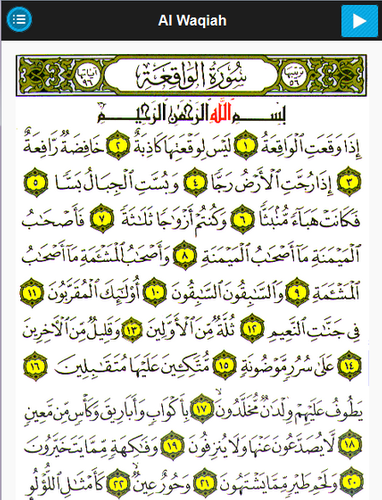 Al Waqiah
ترتيبها ٥٦ سُورَةُ الوَاقِعَة آياتها ٩٦
بِسْمِ اللَّهِ الرَّحْمَنِ الرَّحِيمِ
إِذَا وَقَعَتِ الْوَاقِعَةُ ١ لَيْسَ لِوَقْعَتِهَا كَاذِبَةٌ ٢ خَافِضَةٌ رَّافِعَةٌ
٣ إِذَا رُجَّتِ الْأَرْضُ رَجًّا ٤ وَبُسَّتِ الْجِبَالُ بَسًّا ٥
فَكَانَتْ هَبَاءً مُّنْبَثًّا ٦ وَكُنتُمْ أَزْوَاجًا ثَلَاثَةً ٧ فَأَصْحَابُ
الْمَيْمَنَةِ مَا أَصْحَابُ الْمَيْمَنَةِ ٨ وَأَصْحَابُ الْمَشْئَمَةِ مَا أَصْحَابُ
الْمَشْئَمَةِ ٩ وَالسَّابِقُونَ السَّابِقُونَ ١٠ أُولَٰئِكَ الْمُقَرَّبُونَ ١١
فِي جَنَّاتِ النَّعِيمِ ١٢ ثُلَّةٌ مِّنَ الْأَوَّلِينَ ١٣ وَقَلِيلٌ مِّنَ الْآخِرِينَ
١٤ عَلَىٰ سُرُرٍ مَّوْضُونَةٍ ١٥ مُّتَّكِئِينَ عَلَيْهَا مُتَقَابِلِينَ ١٦
يَطُوفُ عَلَيْهِمْ وِلْدَانٌ مُّخَلَّدُونَ ١٧ بِأَكْوَابٍ وَأَبَارِيقَ وَكَأْسٍ مِّن مَّعِينٍ
١٨ لَّا يُصَدَّعُونَ عَنْهَا وَلَا يُنزِفُونَ ١٩ وَفَاكِهَةٍ مِّمَّا يَتَخَيَّرُونَ
٢٠ وَلَحْمِ طَيْرٍ مِّمَّا يَشْتَهُونَ ٢١ وَحُورٌ عِينٌ ٢٢ كَأَمْثَالِ اللُّؤْلُؤِ